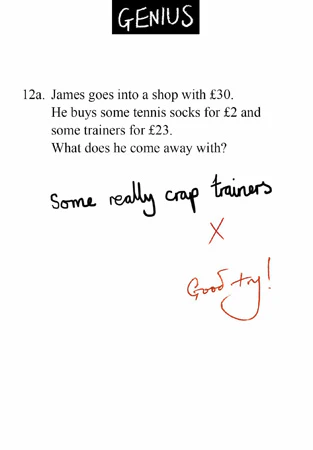 GENIUS
12a. James goes into a shop with £30.
He buys some tennis socks for £2 and
some trainers for £23.
What does he come away with?
Some really crap trainers
X
Good try!